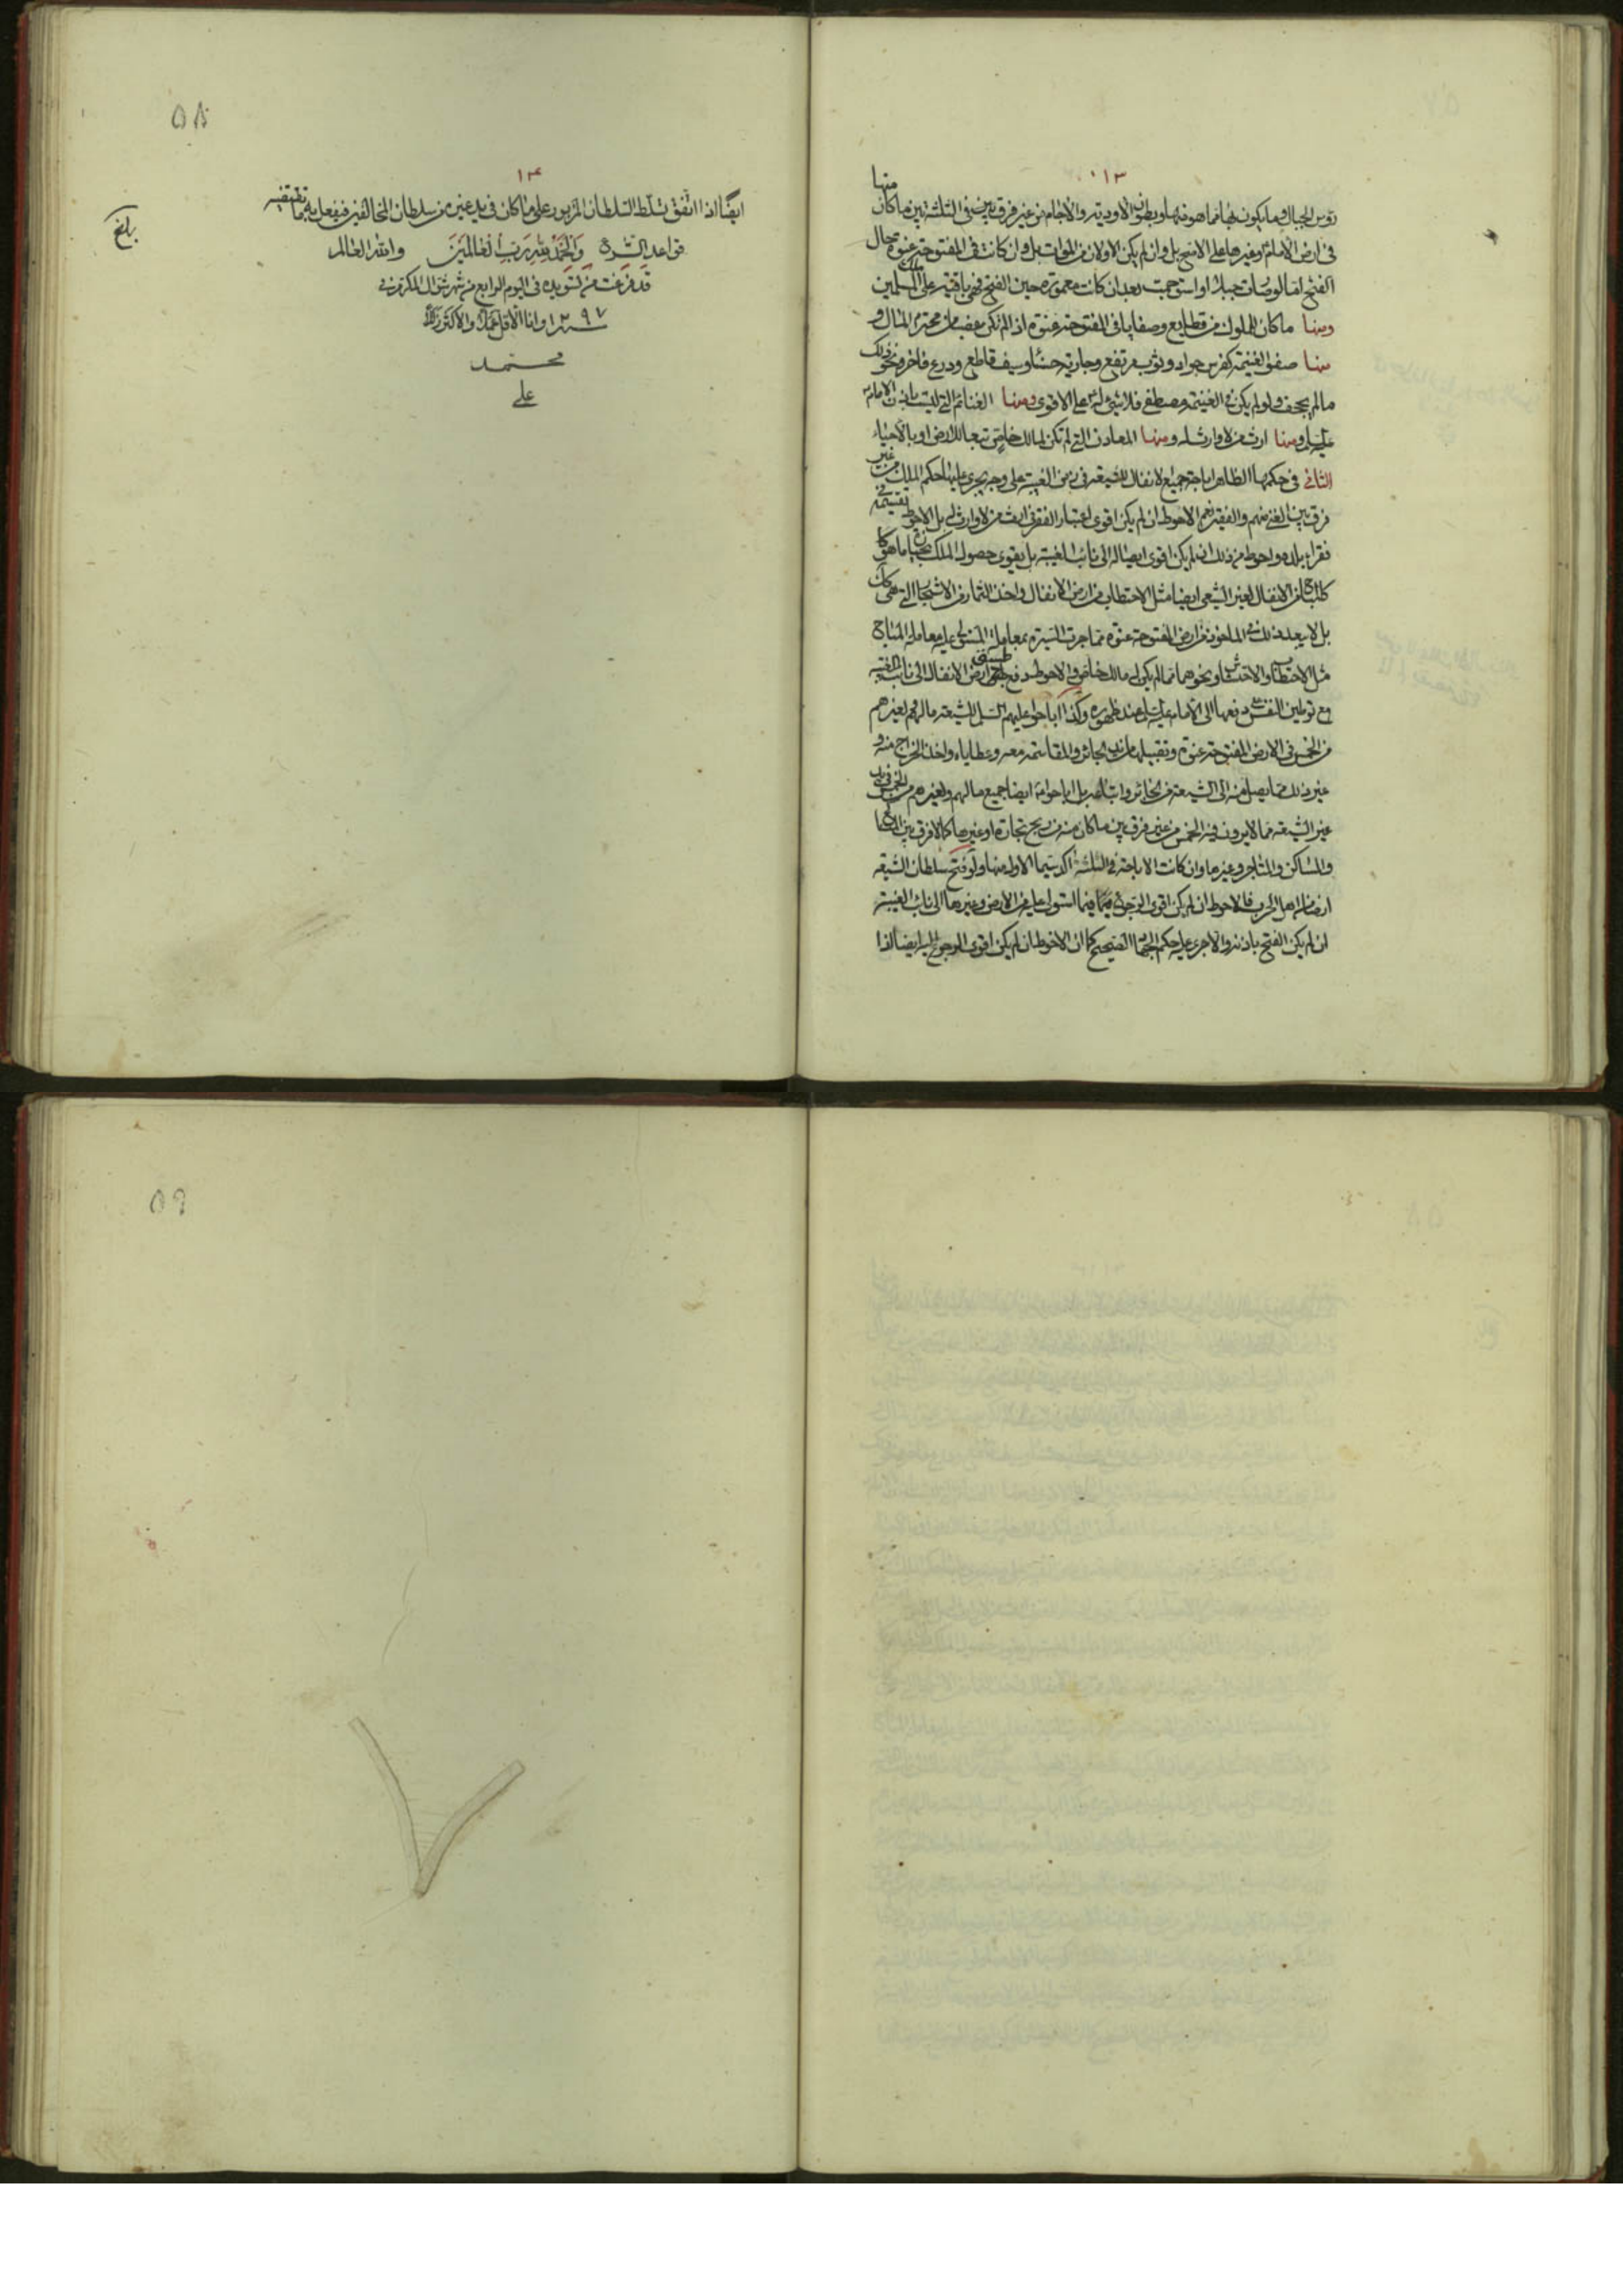 ١١٣
منها
رؤس الجبال وما يكون بها مما هو منها وبطون الاودية والاجام من غير فرق بين في الثلثة بين ما كان
في ارض الامام او غيرها على الاصح بل وان لم يكن الاولان من الموات بل وان كانت في المفتوحة عنوة حال
الفتح اما لو صارت جبلا او استوجمت بعد ان كانت معمورة حين الفتح فهي باقية على المسلمين
ومنها ما كان للملوك من قطايع وصفايا في المفتوحة عنوة اذا لم تكن غصبا من محترم المال و
منها صفو الغنيمة كفرس جواد وثوب مرتفع وجارية حسناء وسيف قاطع ودرع فاخر ونحو ذلك
ما لم يجحف ولو لم يكن في الغنيمة مصطفى فلا شئ له على الاقوى ومنها الغنائم التي ليست باذن الامام
عليه السلم ومنها ارث من لا وارث له ومنها المعادن التي لم تكن لمالك خاص تبعا للارض او بالاحياء
الثاني في حكمها الظاهر اباحة جميع الانفال للشيعة في زمن الغيبة على وجه يجري عليها حكم الملك من غير
فرق بين الغني منهم والفقير نعم الاحوط ان لم يكن اقوى اعتبار الفقر في ارث من لا وارث له بل الاحوط تقسيمه في
فقراء بلده واحوط من ذلك ان لم يكن اقوى ايصاله الى نائب الغيبة بل يقوى حصول الملك بحيازة ما هو كا
كلمباح من الانفال لغير الشيعي ايضا مثل الاحتطاب من ارض الانفال واخذ الثمار من الاشجار التي هي كك
بل لا يبعد ذلك في الماخوذ من ارض المفتوحة عنوة مما جرت السيرة بمعاملة المستولي عليه معاملة المباح
مثل الاحتطاب والاحتشاش ونحوهما مما لم يكن له مالك خاص والاحوط دفع طسق ارض الانفال الى نائب الغيبة
مع توطين النفس على دفعها الى الامام عليه السلم عند ظهوره وكذا اباحوا عليهم السلم للشيعة مالهم ولغيرهم
من الخمس في الارض المفتوحة عنوة وتقبيلها من يد الجائر والمقاسمة معه وعطاياه واخذ الخراج منه و
غير ذلك مما يصل منه الى الشيعة من الجائر واتباعه بل اباحوا لهم ايضا جميع مالهم ولغيرهم من الخمس في يد
غير الشيعة مما لا يرون فيه الخمس من غير فرق بين ما كان منه من ربح تجارة او غيرها كما لا فرق بين
والمساكن والمتاجر وغيرها وان كانت الاباحة في الثلثة اكد سيما الاول منها ولو فتح سلطان الشيعة
ارضا من اهل الحرب فالاحوط ان لم يكن اقوى الرجوع فيما استولى عليه من الارض وغيرها الى نائب الغيبة
ان لم يكن الفتح باذنه والا جرى عليه حكم الجهاد الصحيح كما ان الاحوط ان لم يكن اقوى الرجوع اليه ايضا اذا
٥٨
١١٤
ايضا اذا اتفق تسلط السلطان المزبور على ما كان في يد غيره من سلطان المخالفين فيفعل به ما تقتضيه
قواعد الشرع والحمد لله رب العالمين والله العالم
بلغ
قد فرغت من تسويده في اليوم الرابع من شهر شوال المكرم في
سنة ١٢٩٧ وانا الاقل عملا والاكثر زللا
محمد
علي
٥٩